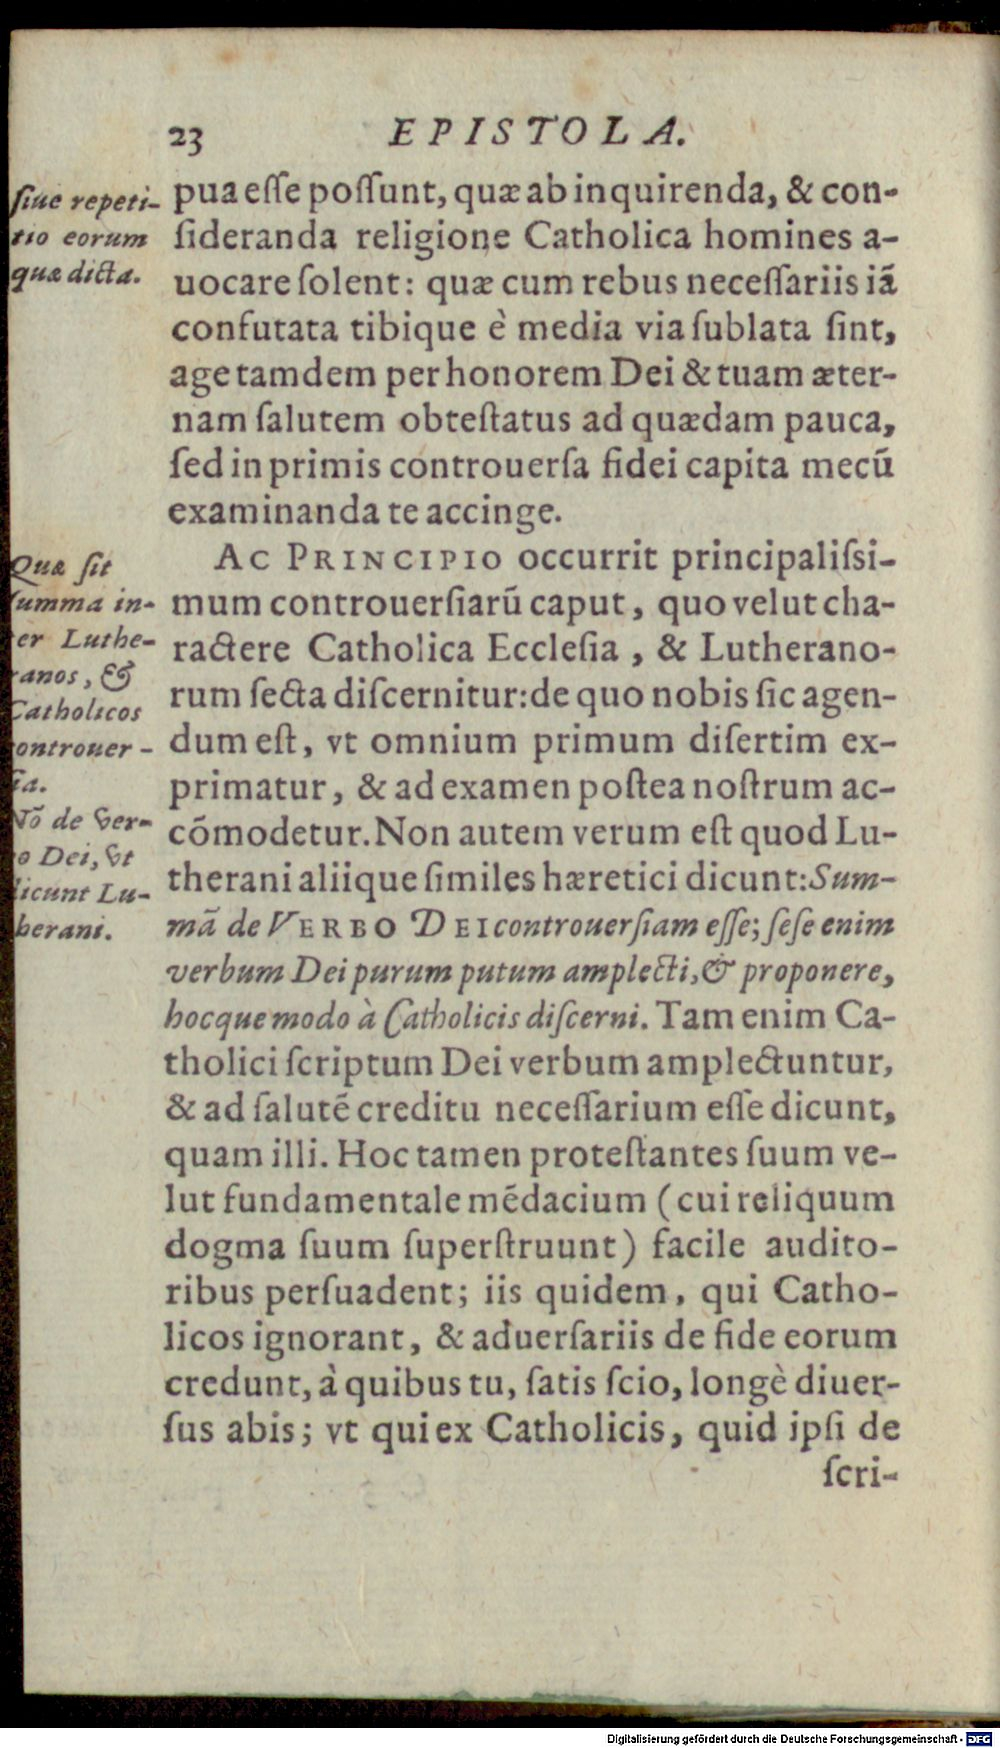 23 EPISTOLA.
ſiue repeti-
tio eorum
quæ dicta.
pua eſſe poſſunt, quæ ab inquirenda, & con-
ſideranda religione Catholica homines a-
uocare ſolent: quæ cum rebus neceſſariis iã
confutata tibique è media via ſublata ſint,
age tamdem per honorem Dei & tuam æter-
nam ſalutem obteſtatus ad quædam pauca,
ſed in primis controuerſa fidei capita mecũ
examinanda te accinge.
Quæ ſit
ſumma in-
er Luthe-
ranos, &
Catholicos
controuer-
ſia.
Nõ de ver-
o Dei, vt
dicunt Lu-
herani.
AC PRINCIPIO occurrit principaliſsi-
mum controuerſiarũ caput, quo velut cha-
ractere Catholica Eccleſia, & Lutherano-
rum ſecta diſcernitur: de quo nobis ſic agen-
dum eſt, vt omnium primum diſertim ex-
primatur, & ad examen poſtea noſtrum ac-
cõmodetur. Non autem verum eſt quod Lu-
therani aliique ſimiles hæretici dicunt: Sum-
mã de VERBO DEI controuerſiam eſſe; ſeſe enim
verbum Dei purum putum amplecti, & proponere,
hocque modo à Catholicis diſcerni. Tam enim Ca-
tholici ſcriptum Dei verbum amplectuntur,
& ad ſalutẽ creditu neceſſarium eſſe dicunt,
quam illi. Hoc tamen proteſtantes ſuum ve-
lut fundamentale mẽdacium (cui reliquum
dogma ſuum ſuperſtruunt) facile audito-
ribus perſuadent; iis quidem, qui Catho-
licos ignorant, & aduerſariis de fide eorum
credunt, à quibus tu, ſatis ſcio, longè diuer-
ſus abis; vt qui ex Catholicis, quid ipſi de
ſcri-
Digitalisierung gefördert durch die Deutsche Forschungsgemeinschaft - DFG